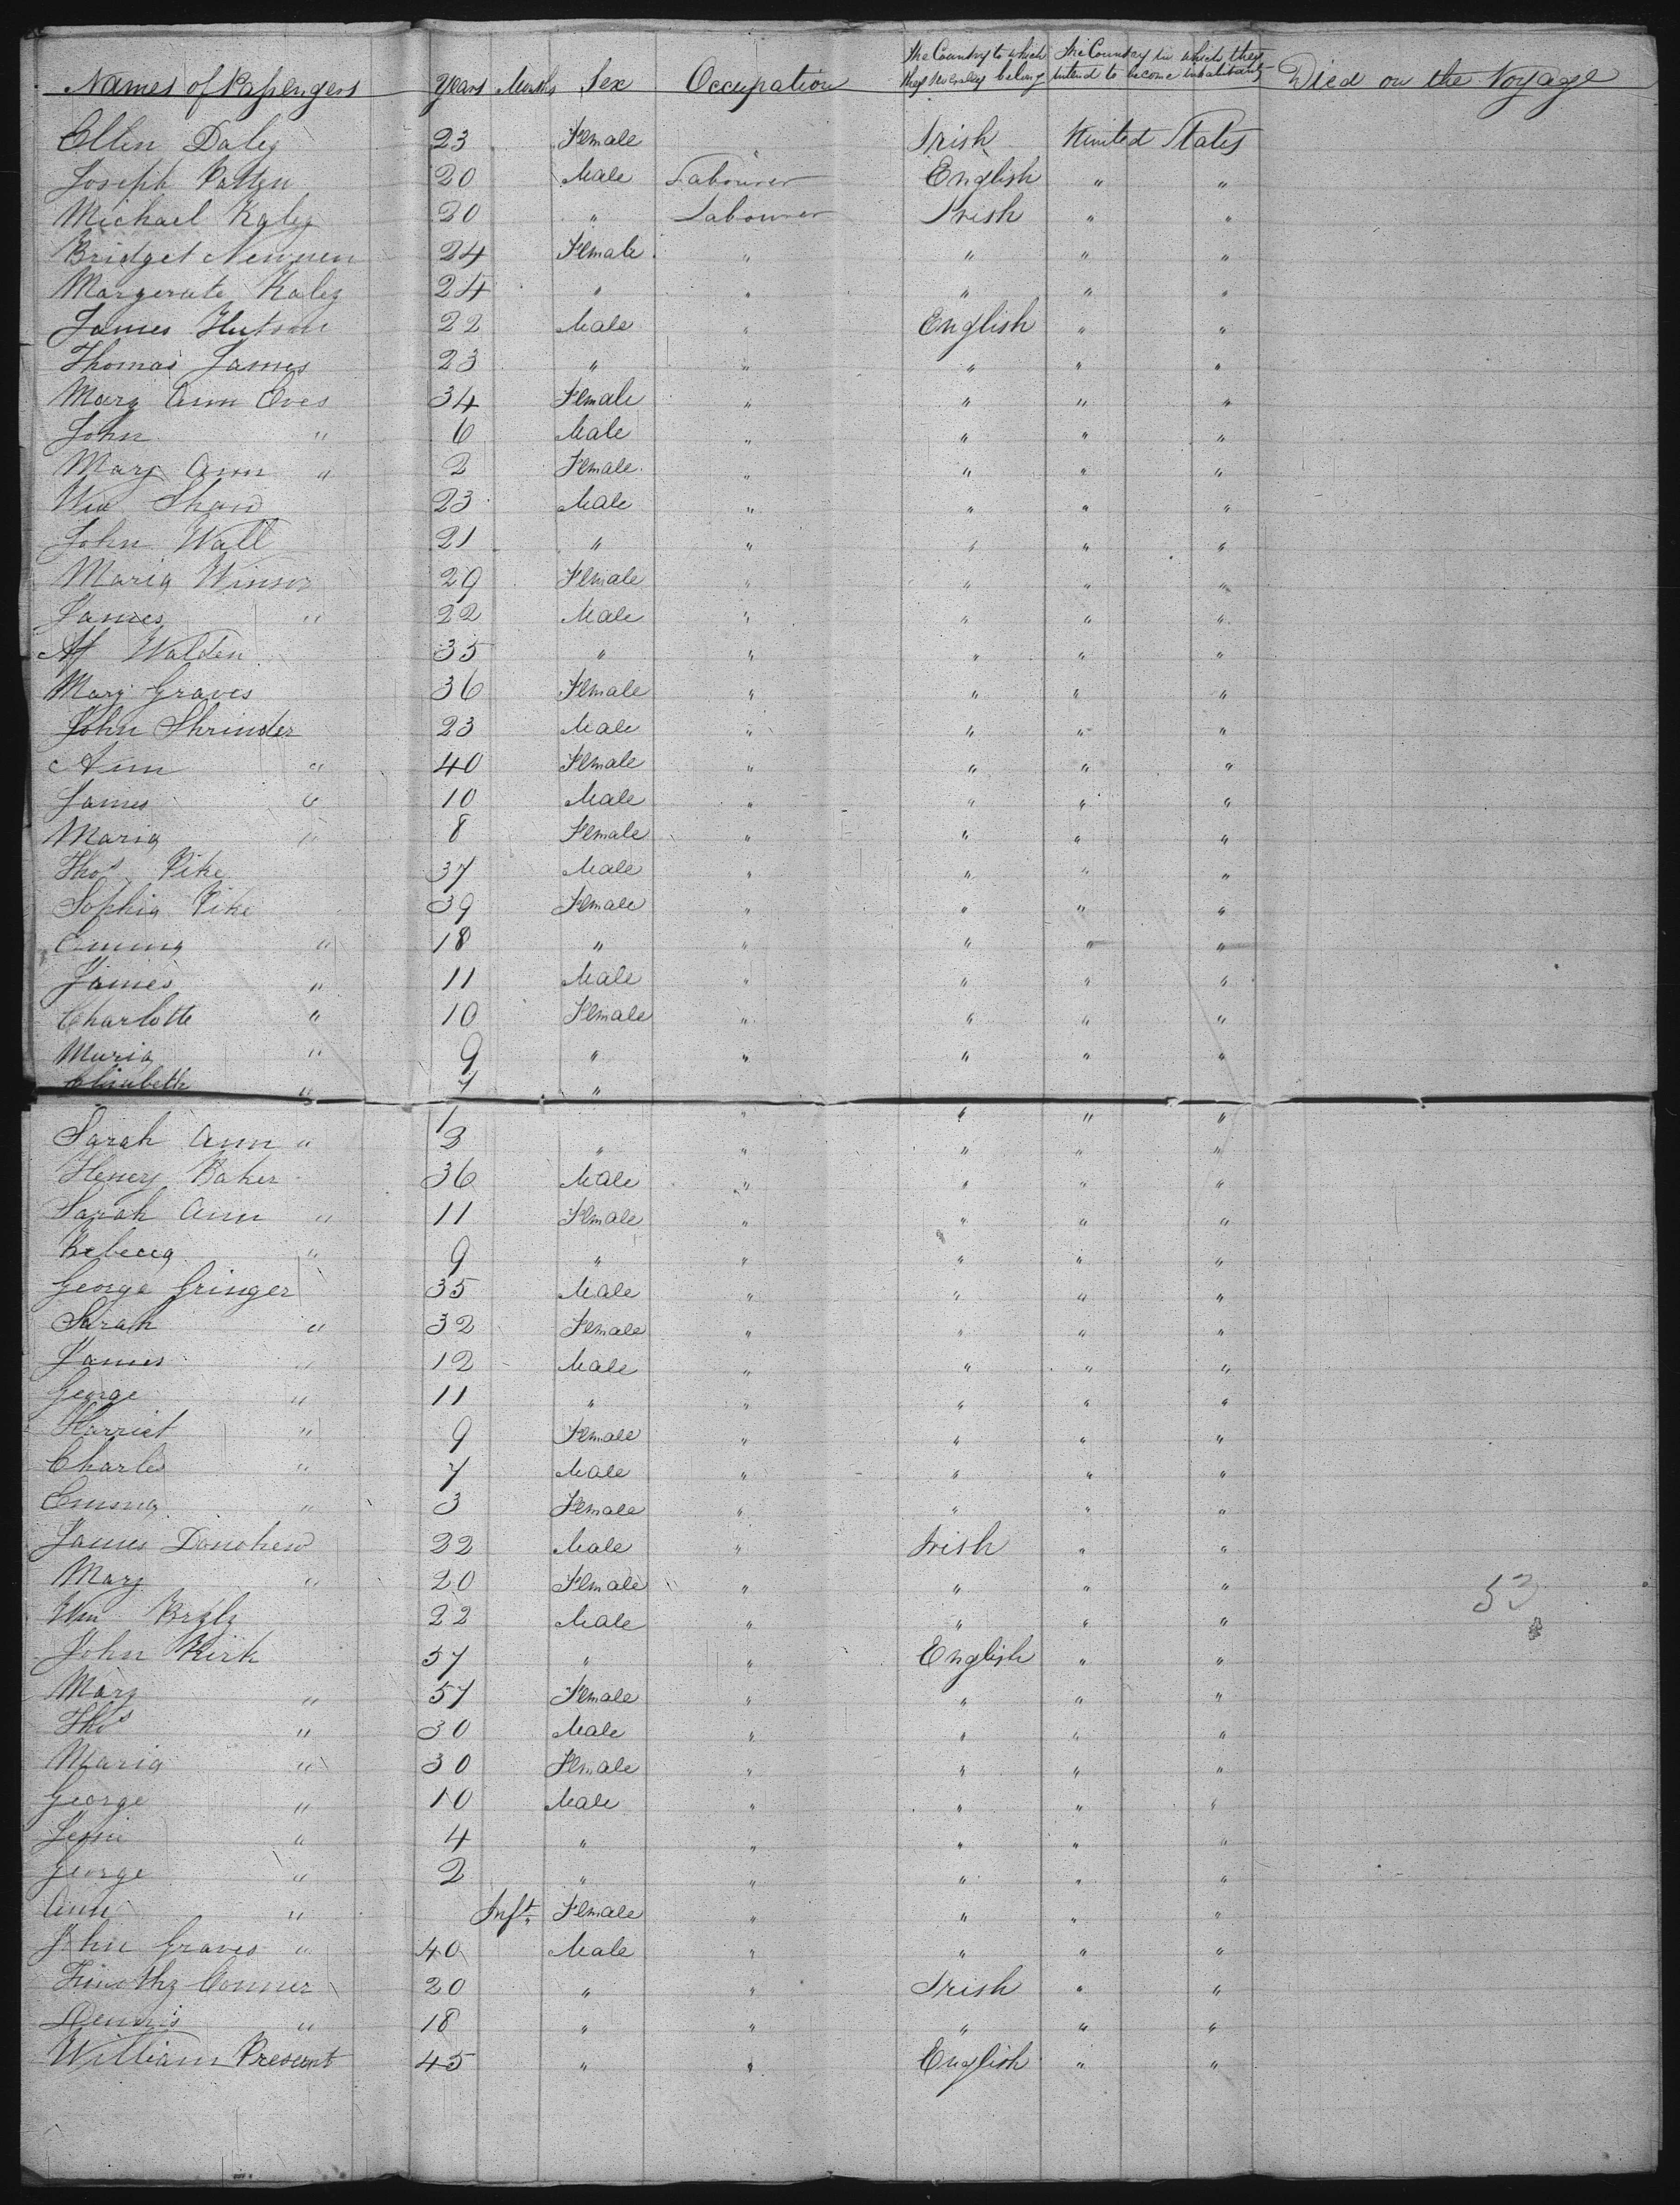 Names of Passengers Years Months Sex Occupation The Country to which they severally belong The Country in which they intend to become inhabitants Died on the Voyage
Ellen Daley 23 Female " Irish United States
Joseph Patten 20 Male Labourer English " "
Michael Kaley 20 " Labourer Irish " "
Bridget 24 Female " " " "
Margerate Kaley 24 " " " " "
James Hutson 22 Male " English " "
Thomas James 23 " " " " "
Mary Ann Eves 34 Female " " " "
John " 6 Male " " " "
Mary Ann " 2 Female " " " "
Wm Shaw 23 Male " " " "
John Wall 21 " " " " "
Maria Winsor 29 Female " " " "
James " 22 Male " " " "
Walden 35 " " " " "
Mary Graves 36 Female " " " "
John Shrinder 23 Male " " " "
Ann " 40 Female " " " "
James " 10 Male " " " "
Maria " 8 Female " " " "
Thos Pike 37 Male " " " "
Sophia Pike 39 Female " " " "
Emma " 18 " " " " "
James " 11 Male " " " "
Charlotte " 10 Female " " " "
Maria " 9 " " " " "
Elisabeth " 7 " " " " "
Sarah Ann " " " " " "
Henery Baker 36 Male " " " "
Sarah Ann " 11 Female " " " "
Rebecca " 9 " " " " "
George Gringer 35 Male " " " "
Sarah " 32 Female " " " "
James " 12 Male " " " "
George " 11 " " " " "
Harriet " 9 Female " " " "
Charles " 7 Male " " " "
Emma " 3 Female " " " "
James Donohew 22 Male " Irish " "
Mary " 20 Female " " " "
Wm 22 Male " " " "
John Kirk 57 " " English " "
Mary " 57 Female " " " "
Thos " 30 Male " " " "
Maria " 30 Female " " " "
George " 10 Male " " " "
" 4 " " " " "
George " 2 " " " " "
Ann " Inft. Female " " " "
John Graves " 40 Male " " " "
Timothy Conner 20 " " Irish " "
Dennis " 18 " " " " "
William Present 45 " " English " "
53